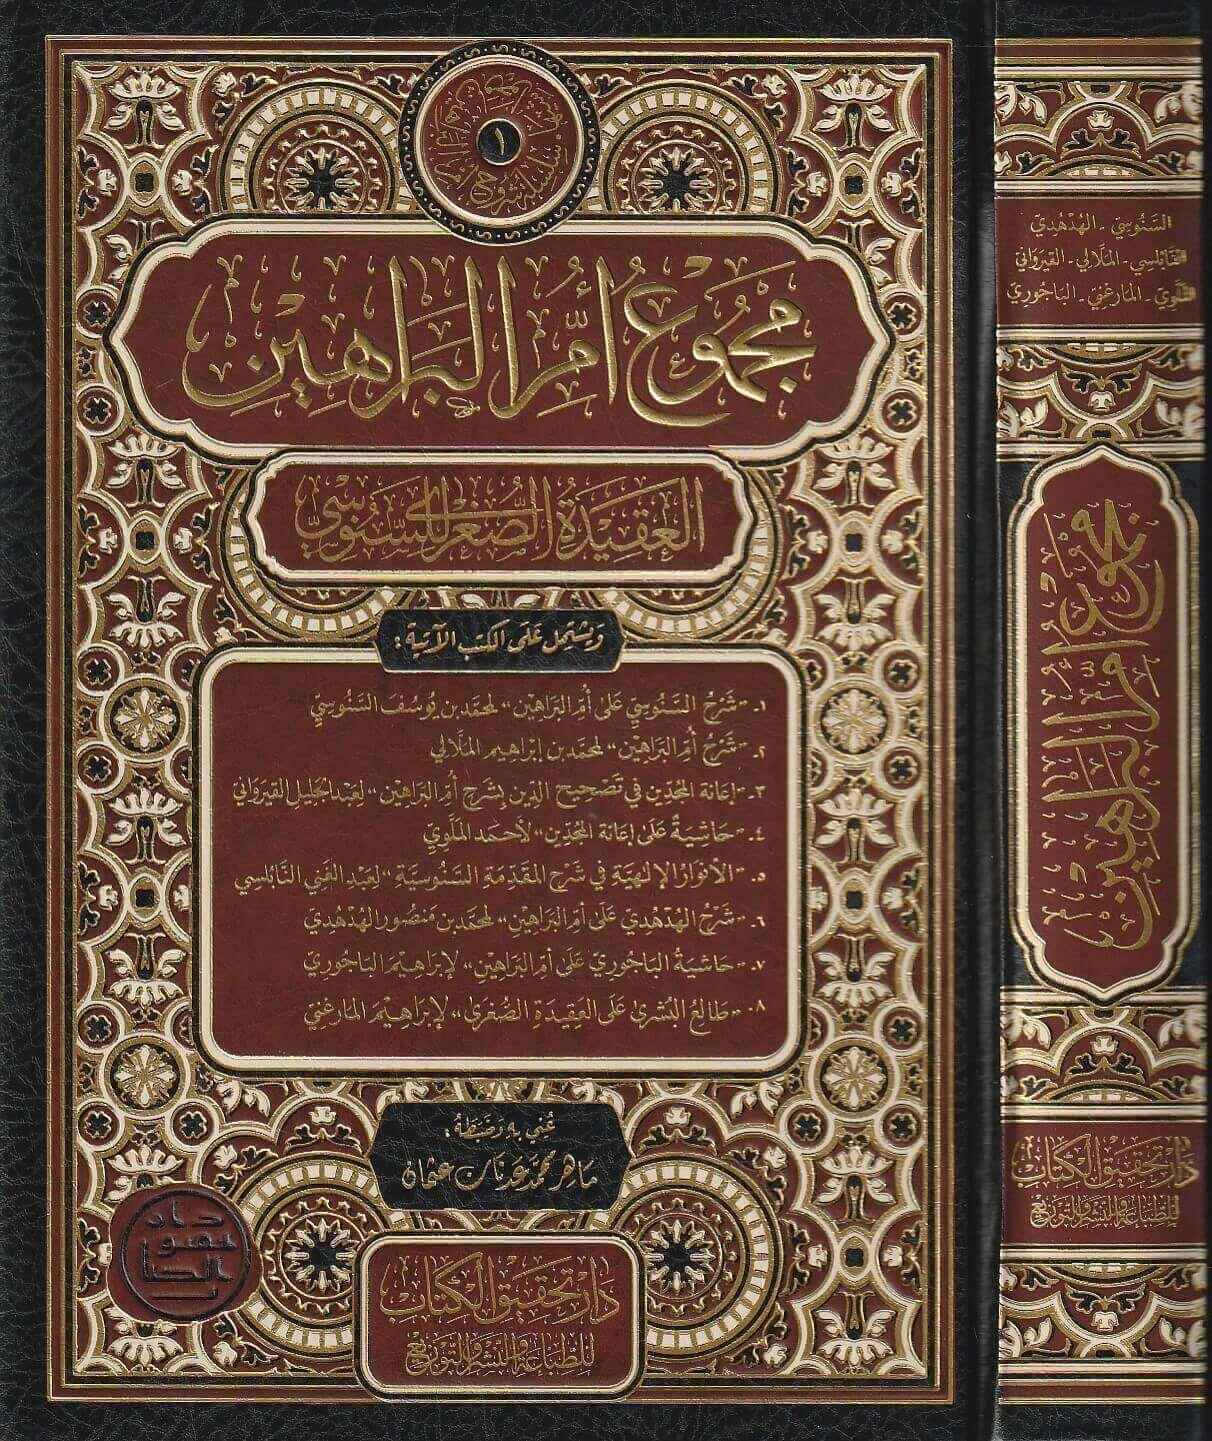 سلسلة شروح أم البراهين
١
مجموع أم البراهين
العقيدة الصغرى للسنوسي
ويشتمل على الكتب الآتية:
١- «شَرْحُ السَّنُوسِيِّ عَلَى أُمِّ البَرَاهِين» لمحمد بن يُوسُف السَّنُوسِيّ
٢- «شَرْحُ أُمِّ البَرَاهِين» لمحمد بن إبْرَاهِيم الملَالِي
٣- «إعَانَة المُجِدِّين في تَصْحِيحِ الدِّين بِشَرْحِ أُمِّ البَرَاهِين» لِعَبْد الجَلِيل القَيْرَوَانِيّ
٤- «حَاشِيَةٌ عَلَى إعَانَة المُجِدِّين» لأحمَد الملَّوِيّ
٥- «الأنوَارُ الإلَهِيَّة في شَرْحِ المُقَدِّمَةِ السَّنُوسِيَّة» لِعَبْد الغَنِي النَّابُلْسِي
٦- «شَرْحُ الهُدْهُدِيِّ عَلَى أُمِّ البَرَاهِين» لمحمد بن مَنصُور الهُدْهُدِيّ
٧- «حَاشِيَةُ البَاجُورِيِّ عَلَى أُمِّ البَرَاهِين» لإبْرَاهِيم البَاجُورِيّ
٨- «طَالِعُ البُشْرَىٰ عَلَى العَقِيدَةِ الصُّغْرَى» لإبْرَاهِيم المَارِغْنِيّ
عُني به وضبطه:
ماهر محمد عدنان عثمان
دار تحقيق الكتاب
للطباعة والنشر والتوزيع
السَّنُوسِيّ - الهُدْهُدِيّ
النَّابُلْسِي - الملَالِي - القَيْرَوَانِيّ
الملَّوِيّ - المَارِغْنِيّ - البَاجُورِيّ
مجموع أم البراهين
دار تحقيق الكتاب
للطباعة والنشر والتوزيع